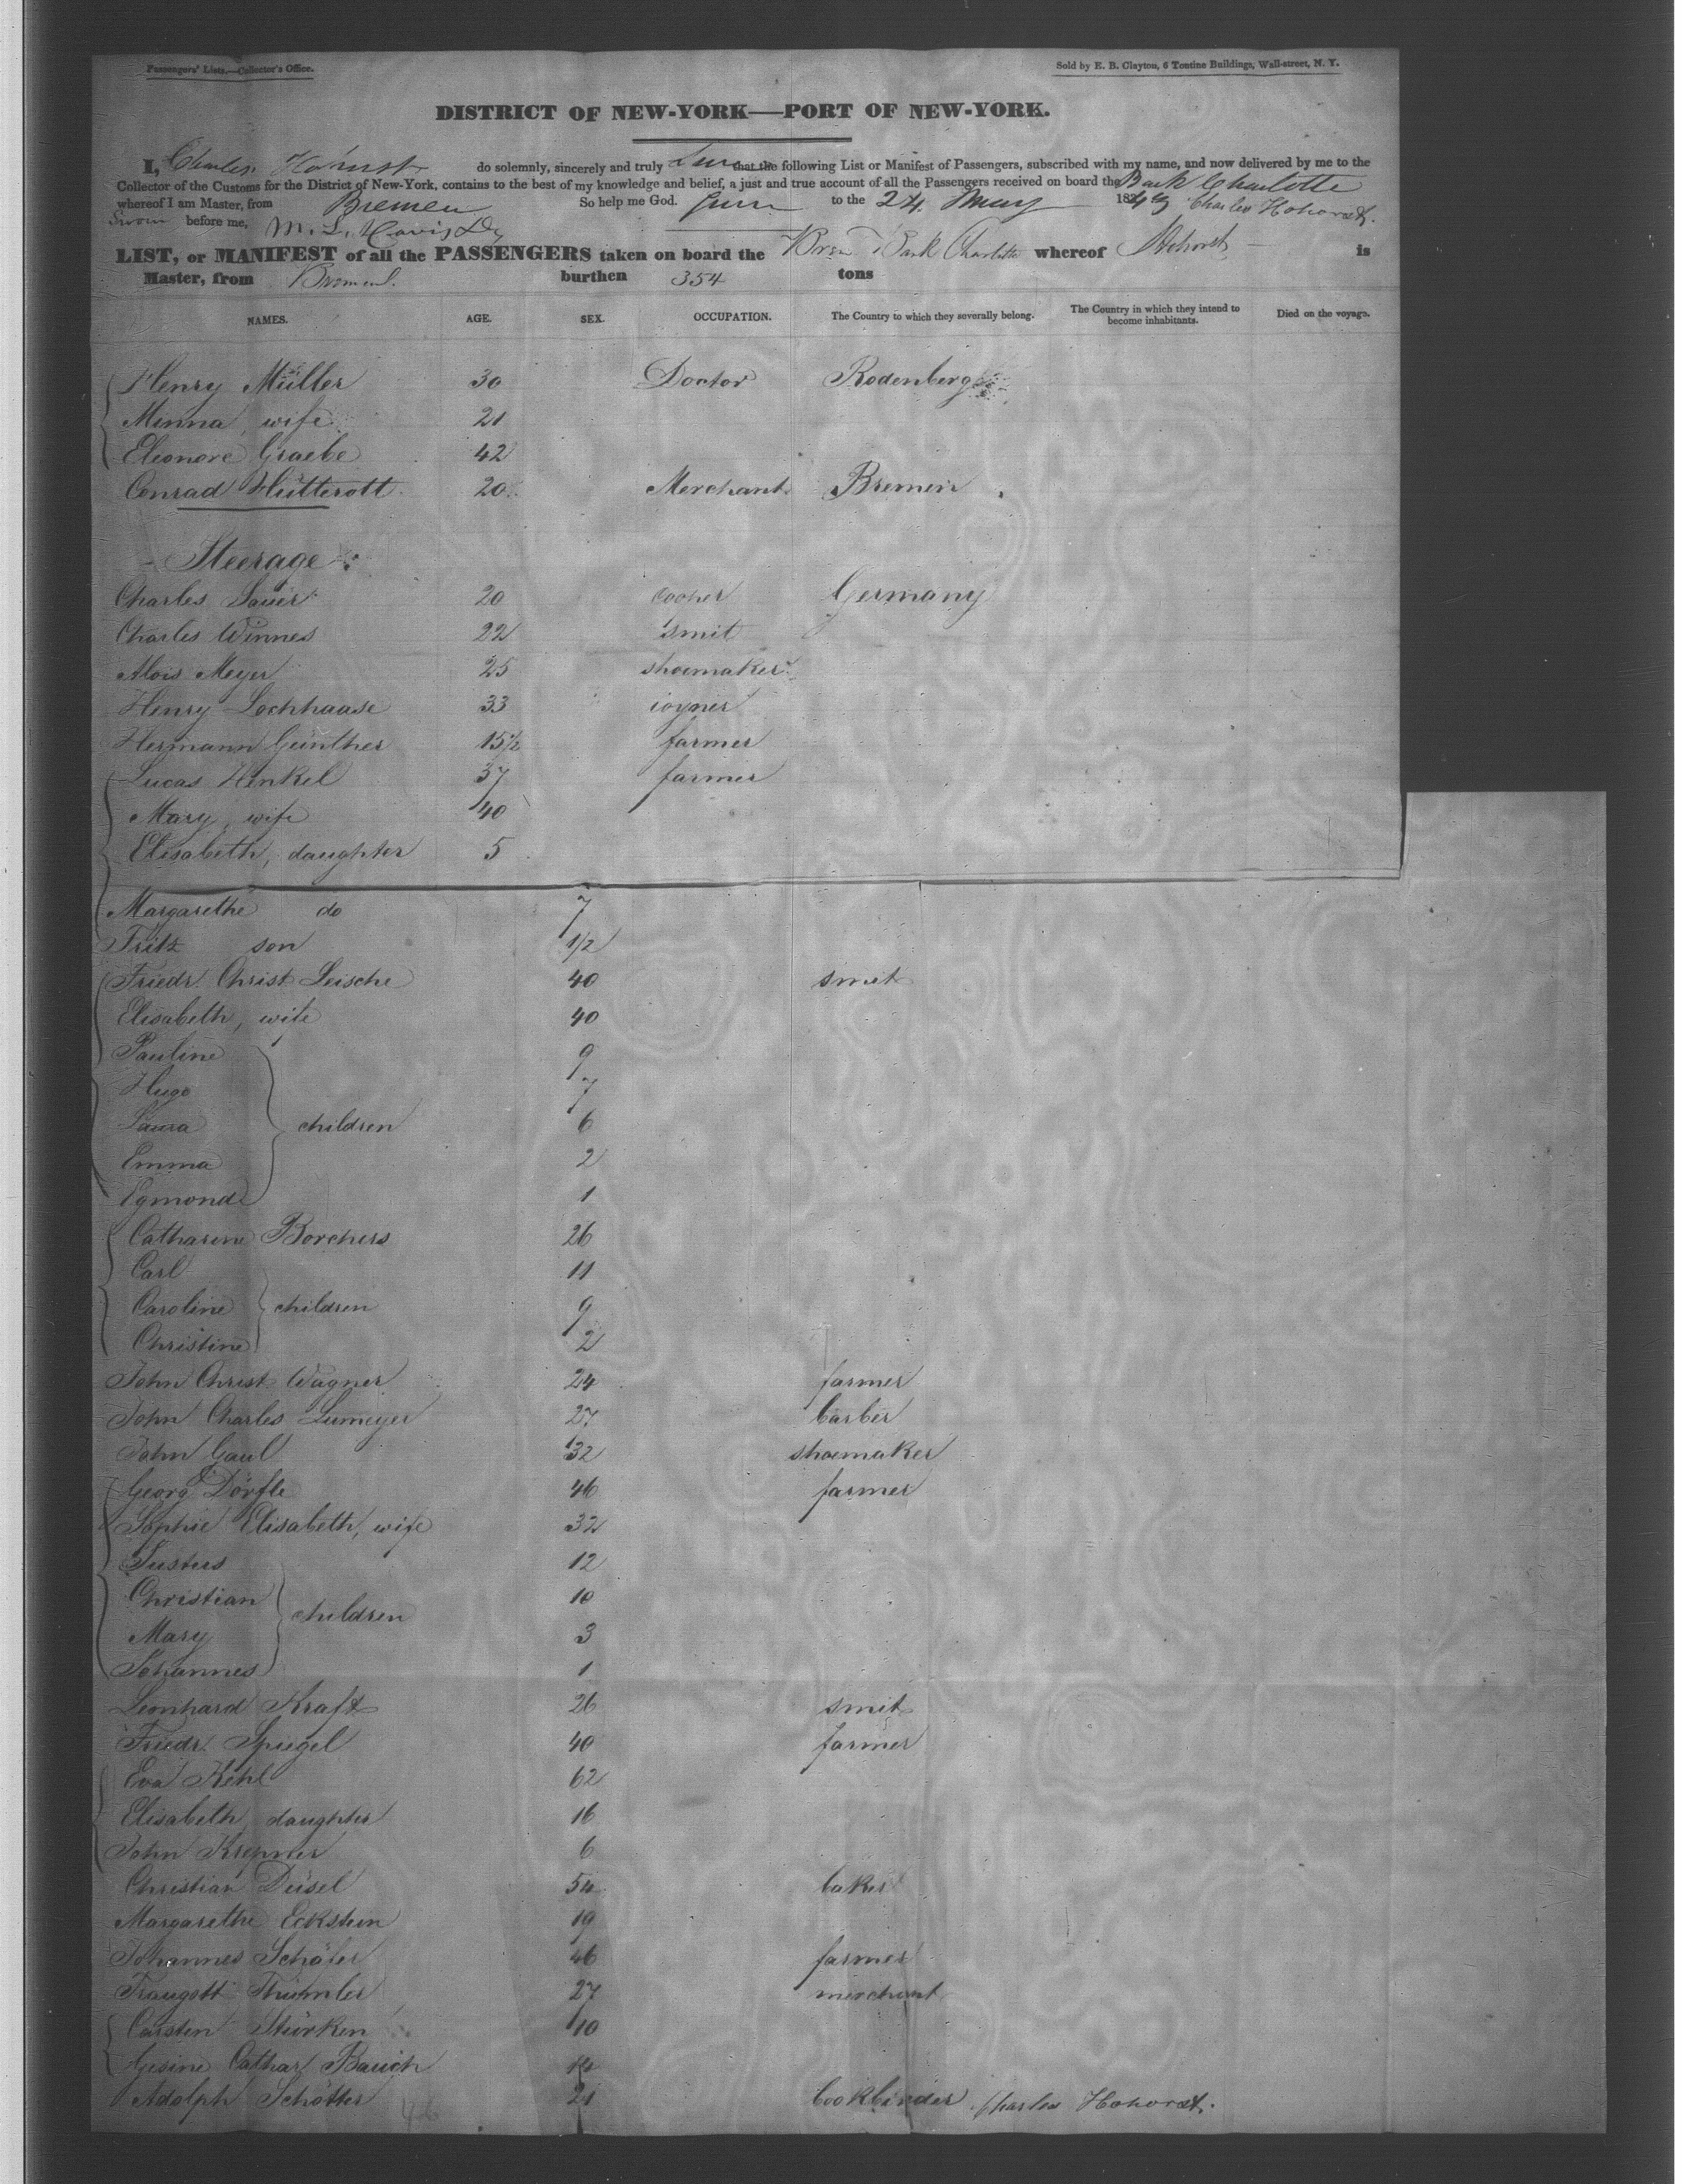 Passengers' Lists.—Collector's Office.
Sold by E. B. Clayton, 6 Tontine Buildings, Wall-street, N. Y.
DISTRICT OF NEW-YORK—PORT OF NEW-YORK.
I, Charles Hohorst do solemnly, sincerely and truly that the following List or Manifest of Passengers, subscribed with my name, and now delivered by me to the
Collector of the Customs for the District of New-York, contains to the best of my knowledge and belief, a just and true account of all the Passengers received on board the Bark Charlotte
whereof I am Master, from Bremen So help me God. to the 24. May Charles Hohorst.
Sworn before me,
LIST, or MANIFEST of all the PASSENGERS taken on board the Brem Bark Charlotte whereof Hohorst is
Master, from Bremen. burthen 354 tons
NAMES. AGE. SEX. OCCUPATION. The Country to which they severally belong. The Country in which they intend to become inhabitants. Died on the voyage.
Henry Müller 30 Doctor Rodenberg
Minna, wife 21
Eleonore Graebe 42
Conrad Hütterott 20 Merchant Bremen
Steerage:
Charles Sauer 20 cooper Germany
Charles Winnes 22 smit
Alois Meyer 25 shoemaker
Henry Lochhaase 33 ioyner
Hermann Günther 15½ farmer
Lucas Henkel 37 farmer
Mary, wife 40
Elisabeth, daughter 5
Margarethe do 7
Fritz son 1/2
Friedr. Christ Leische 40 smit
Elisabeth, wife 40
Pauline 9
Hugo 7
Laura children 6
Emma 2
Egmond 1
Catharine Borchers 26
Carl 11
Caroline children 9
Christine 2
John Christ. Wagner 24 farmer
John Charles Lumeyer 27 barber
John Gaul 32 shoemaker
Georg Dörfle 46 farmer
Sophie Elisabeth, wife 32
Justus 12
Christian 10
children
Mary 3
Johannes 1
Leonhard Kraft 26 smit
Friedr. Spiegel 40 farmer
Eva Kehl 62
Elisabeth, daughter 16
John Krepner 6
Christian Deisel 54 baker
Margarethe Eckstein 19
Johannes Schäfer 46 farmer
Traugott Thümler 27 merchant
Carsten Stürken 10
Gesine Cathar. Bauch 14
Adolph Schötter 21 bookbinder Charles Hohorst.